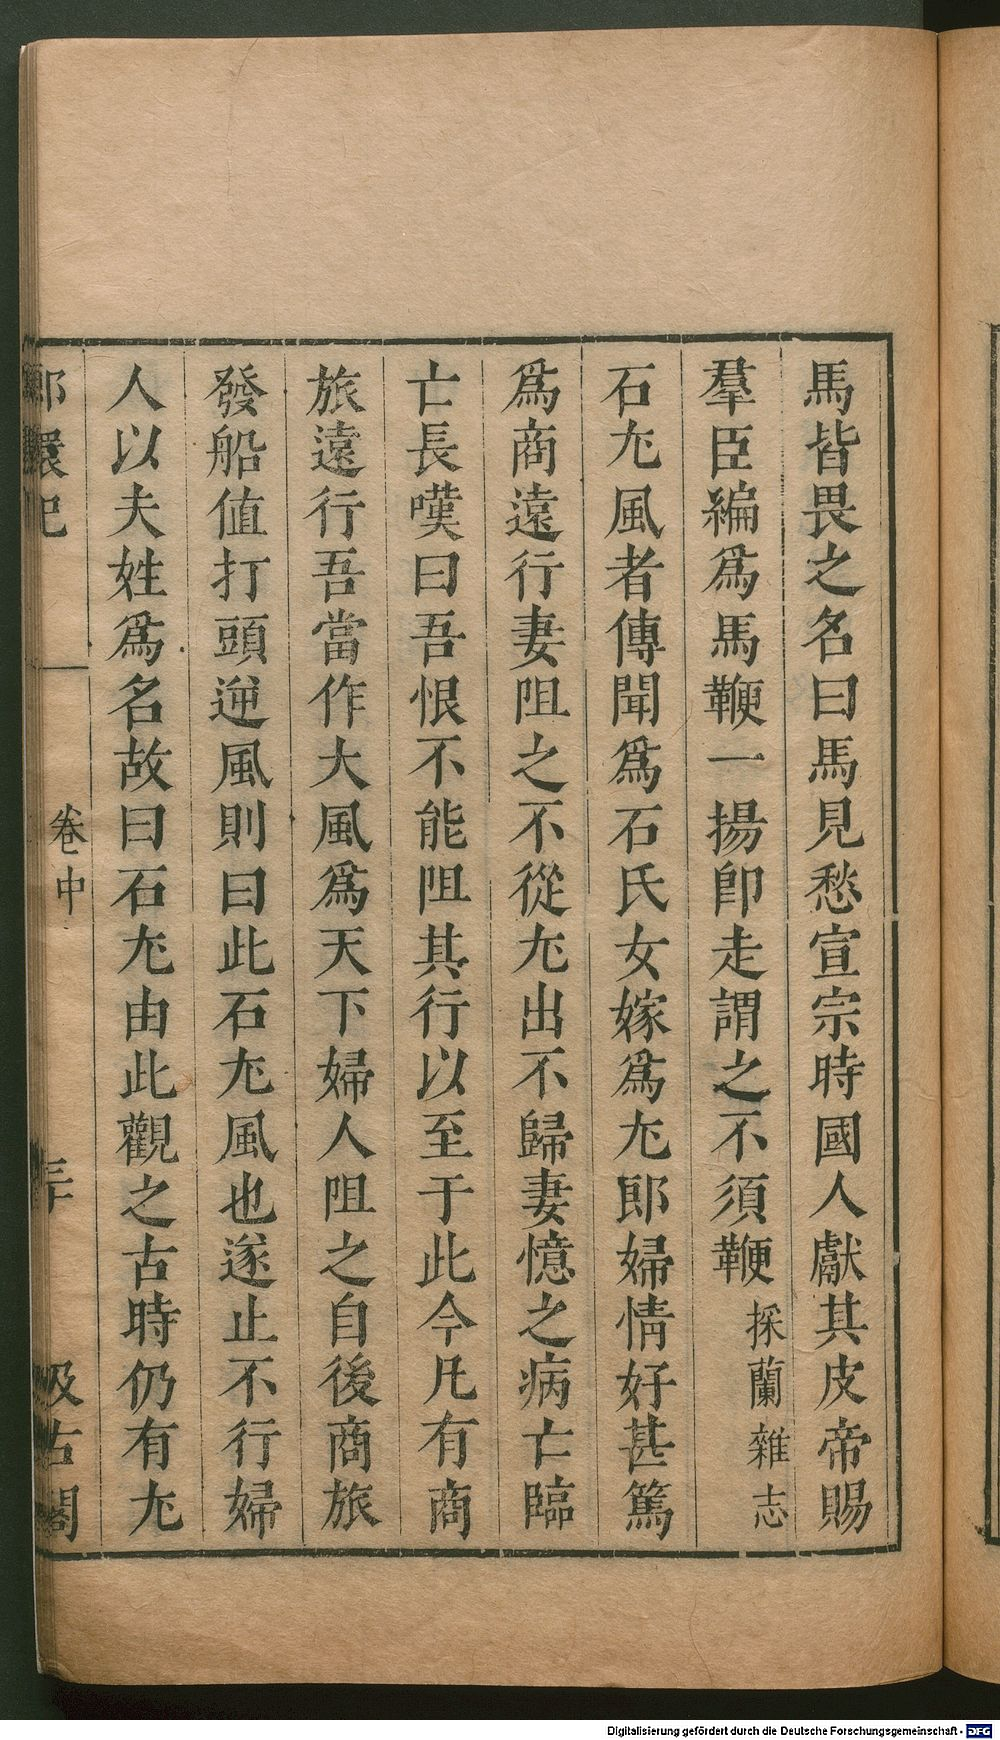 馬皆畏之名曰馬見愁宣宗時國人獻其皮帝賜
羣臣編爲馬鞭一揚卽走謂之不須鞭採蘭雜志
石尤風者傳聞爲石氏女嫁爲尤郎婦情好甚篤
爲商遠行妻阻之不從尤出不歸妻憶之病亡臨
亡長嘆曰吾恨不能阻其行以至于此今凡有商
旅遠行吾當作大風爲天下婦人阻之自後商旅
發船值打頭逆風則曰此石尤風也遂止不行婦
人以夫姓爲名故曰石尤由此觀之古時仍有尤
卷中
汲古閣
Digitalisierung gefördert durch die Deutsche Forschungsgemeinschaft - DFG